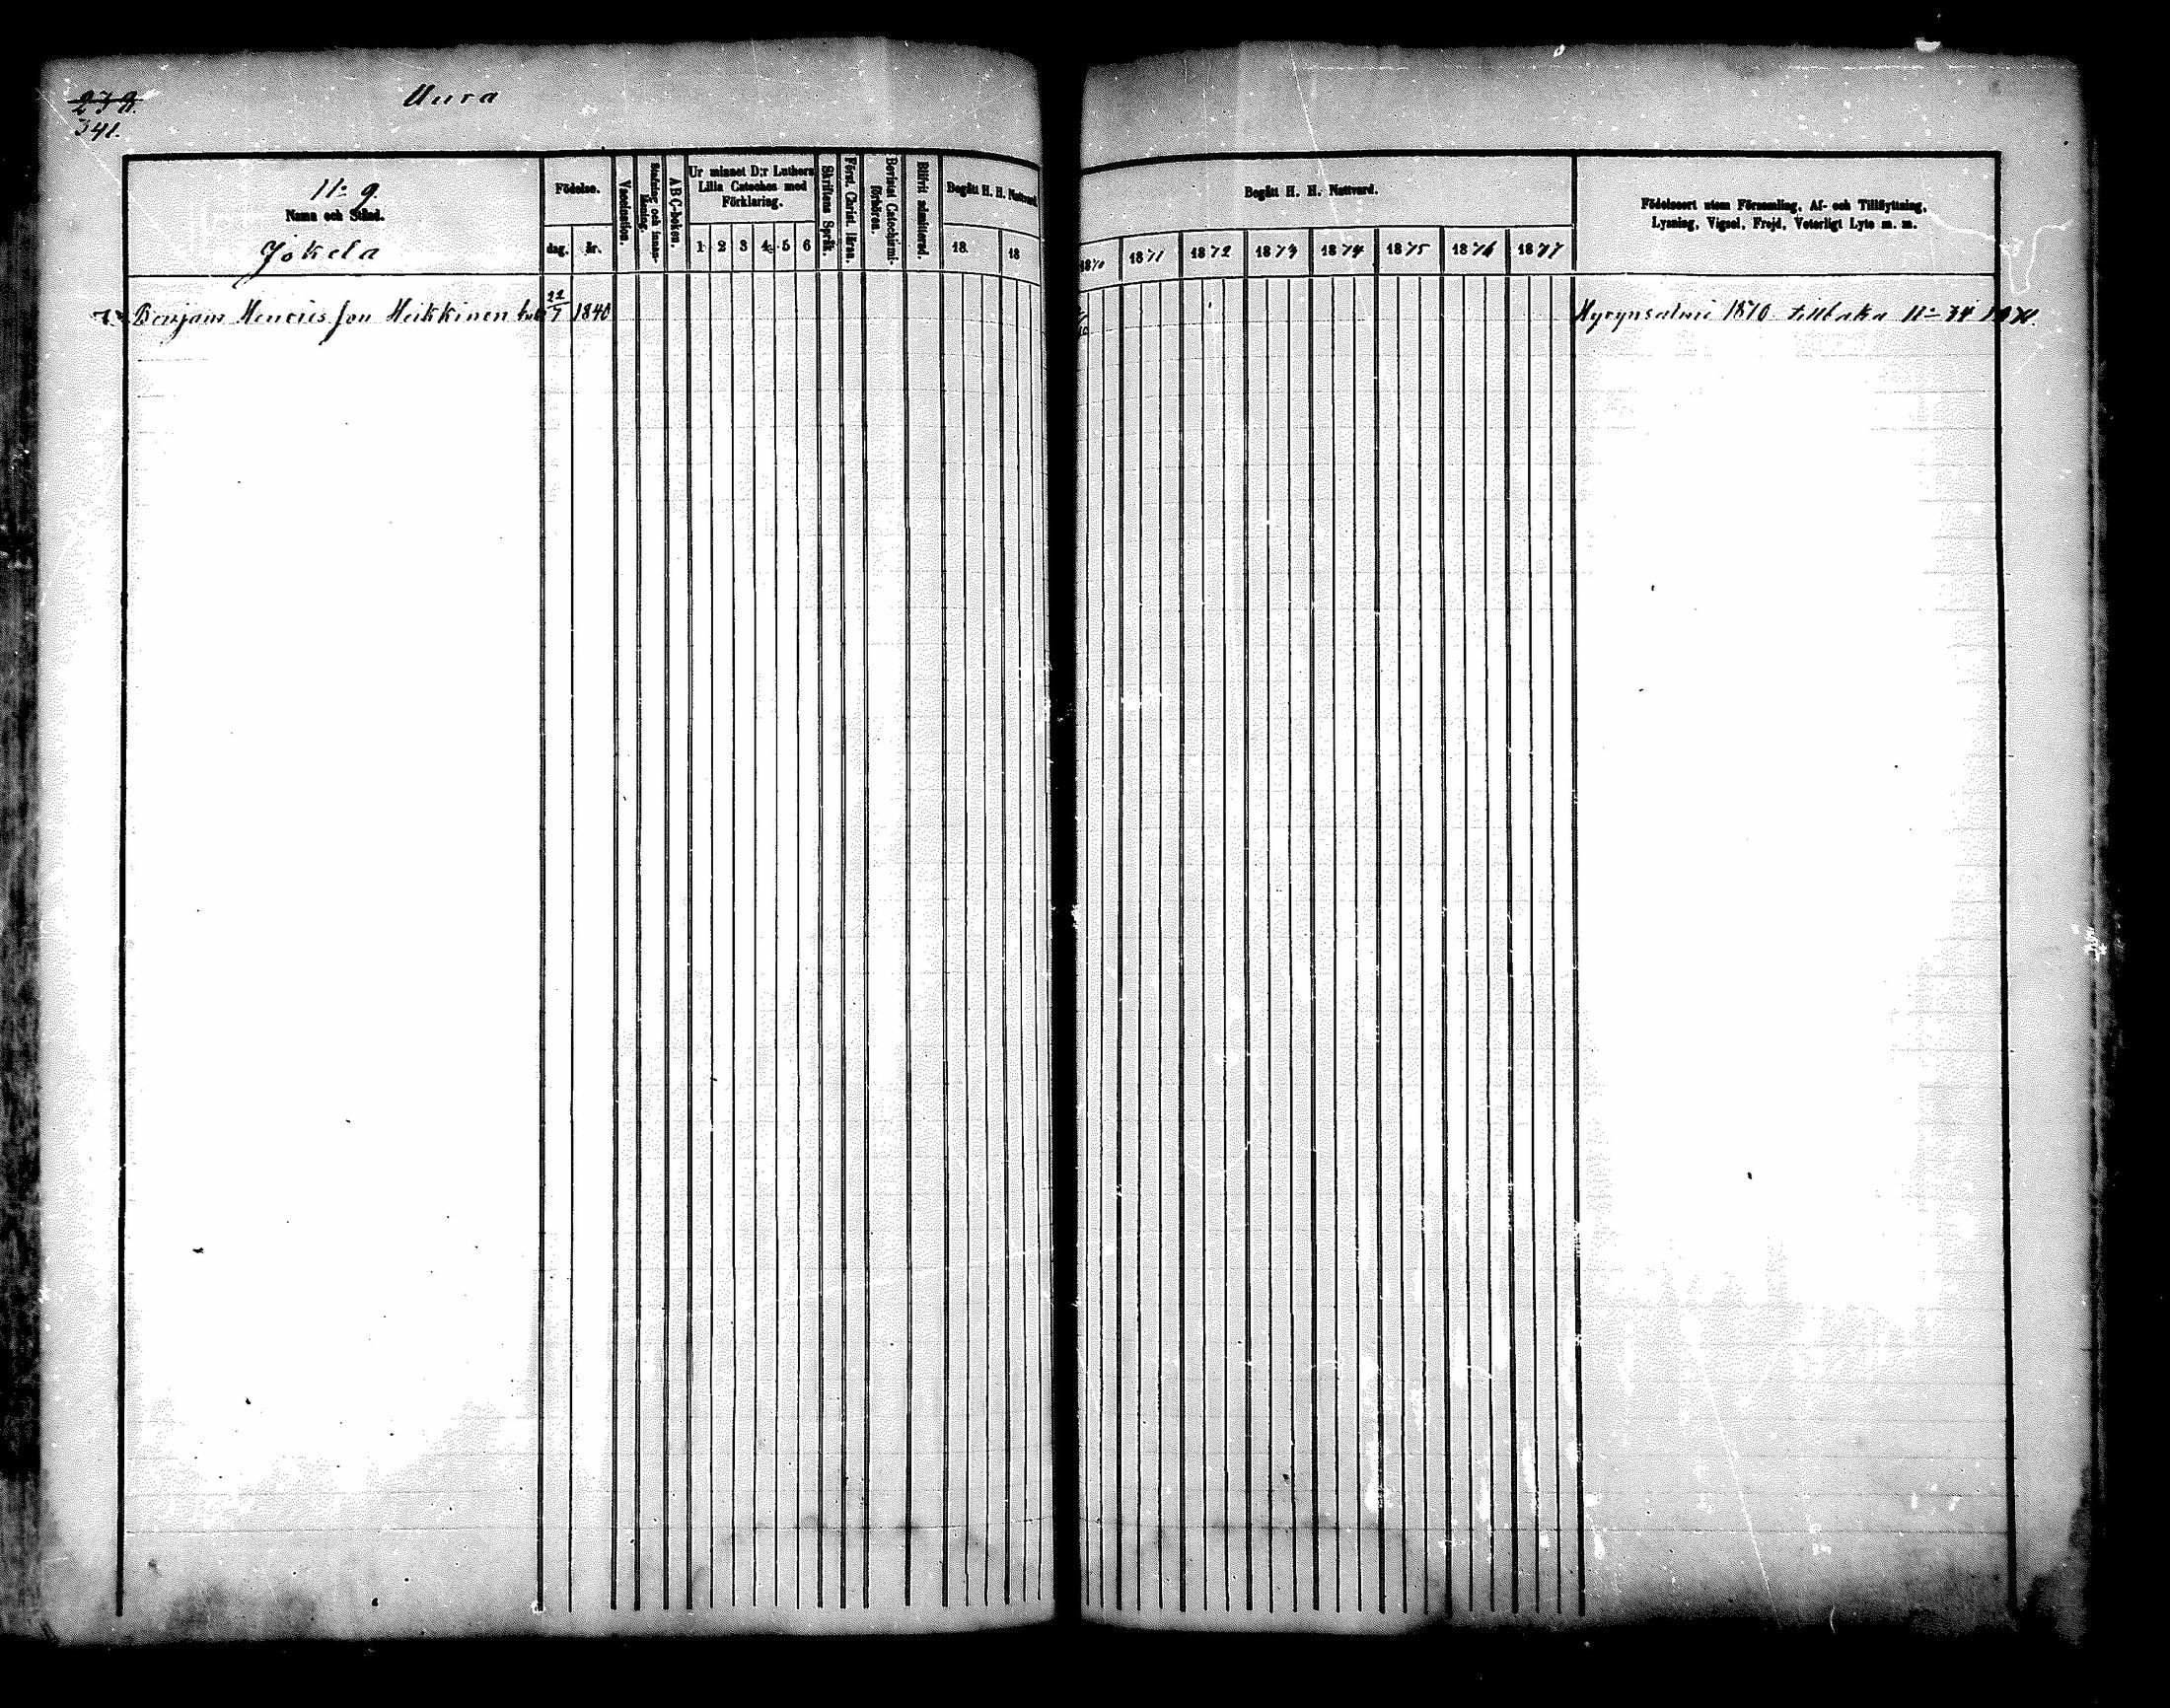 238.
341.
Uura
N:o 9.
Namn och Stånd.
Jokela
Födelse.
dag.
år.
Vaccination.
Stafning och innan-läsning.
A B C-boken.
Ur minnet D:r Luthers
Lilla Cateches med
Förklaring.
1 2 3 4 5 6
Skriftens Språk.
Först. Christ. läran.
Bevistat Catechismi-förhören.
Blifvit admitterad.
Begått H. H. Nattvard
18 18
Begått H. H. Nattvard.
1870 1871 1872 1873 1874 1875 1876 1877
Födelseort utom Församling, Af- och Tillflyttning,
Lysning, Vigsel, Frejd, Veterligt Lyte m. m.
Benjam Henriks son Heikkinen 22/7 1840
Hyrynsalmi 1870 tillbaka N:o 34